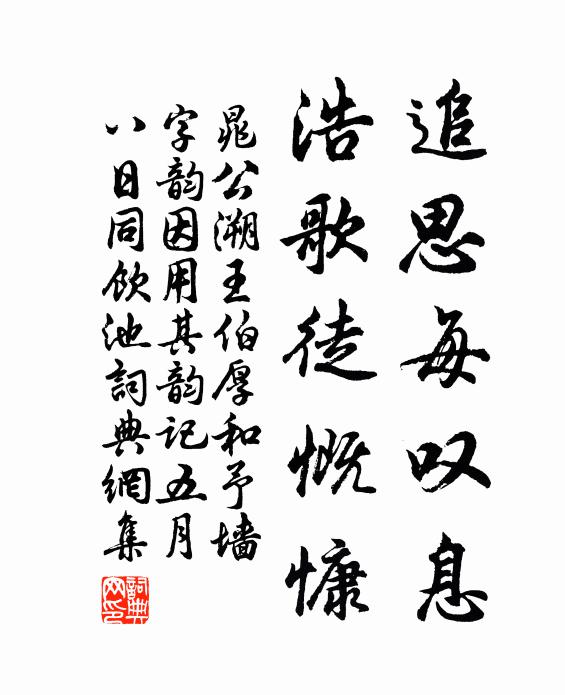 追思每叹息
浩歌徒慨慷
晁公溯王伯厚和予墙
字韵因用其韵记五月
八日同饮池詞典網集
詞典
网印